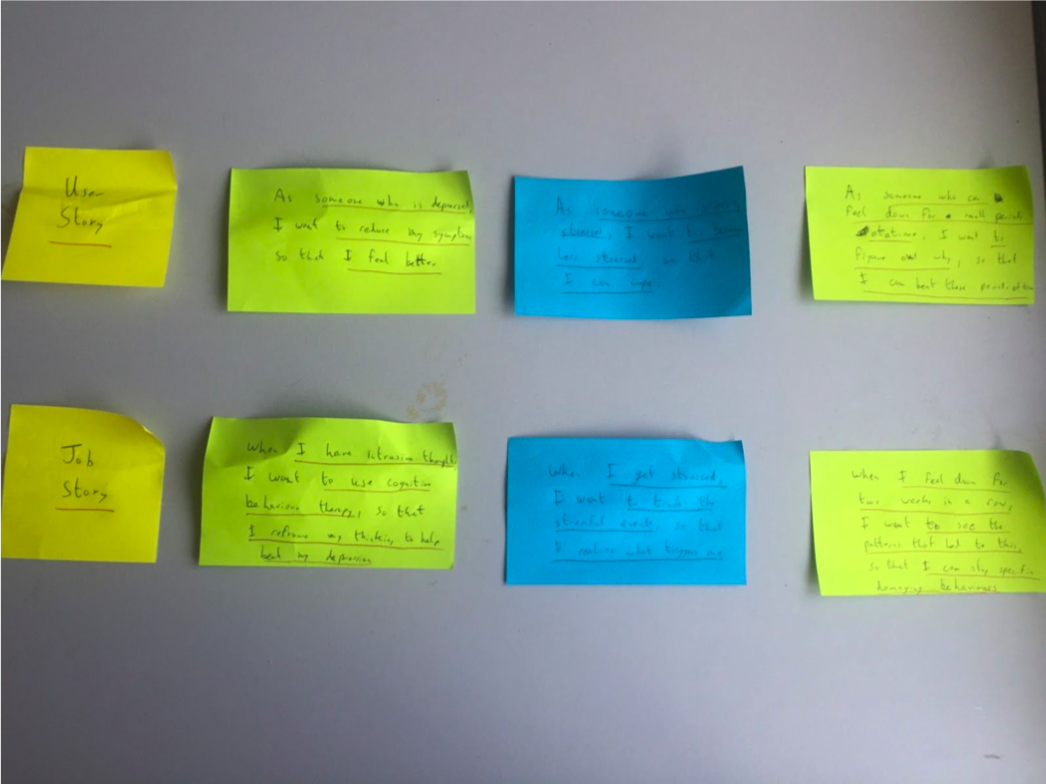 User
Story
As someone who is depressed,
I want to reduce my symptoms
so that I feel better
As someone who
stressed, I want to
less stressed, so that
I can cope.
As someone who can
feel down for a small period
of a time, I want to
figure out why, so that
I can beat these periods of
Job
Story
When I have intrusive thought
I want to use cognitive
behaviour therapy, so that
I reframe my thinking to help
beat my depression
When I get stressed,
I want to track the
stressful events, so that
I realise what triggers me
When I feel down for
two weeks in a row,
I want to see the
patterns that led to this,
so that I can stop specific
damaging behaviours